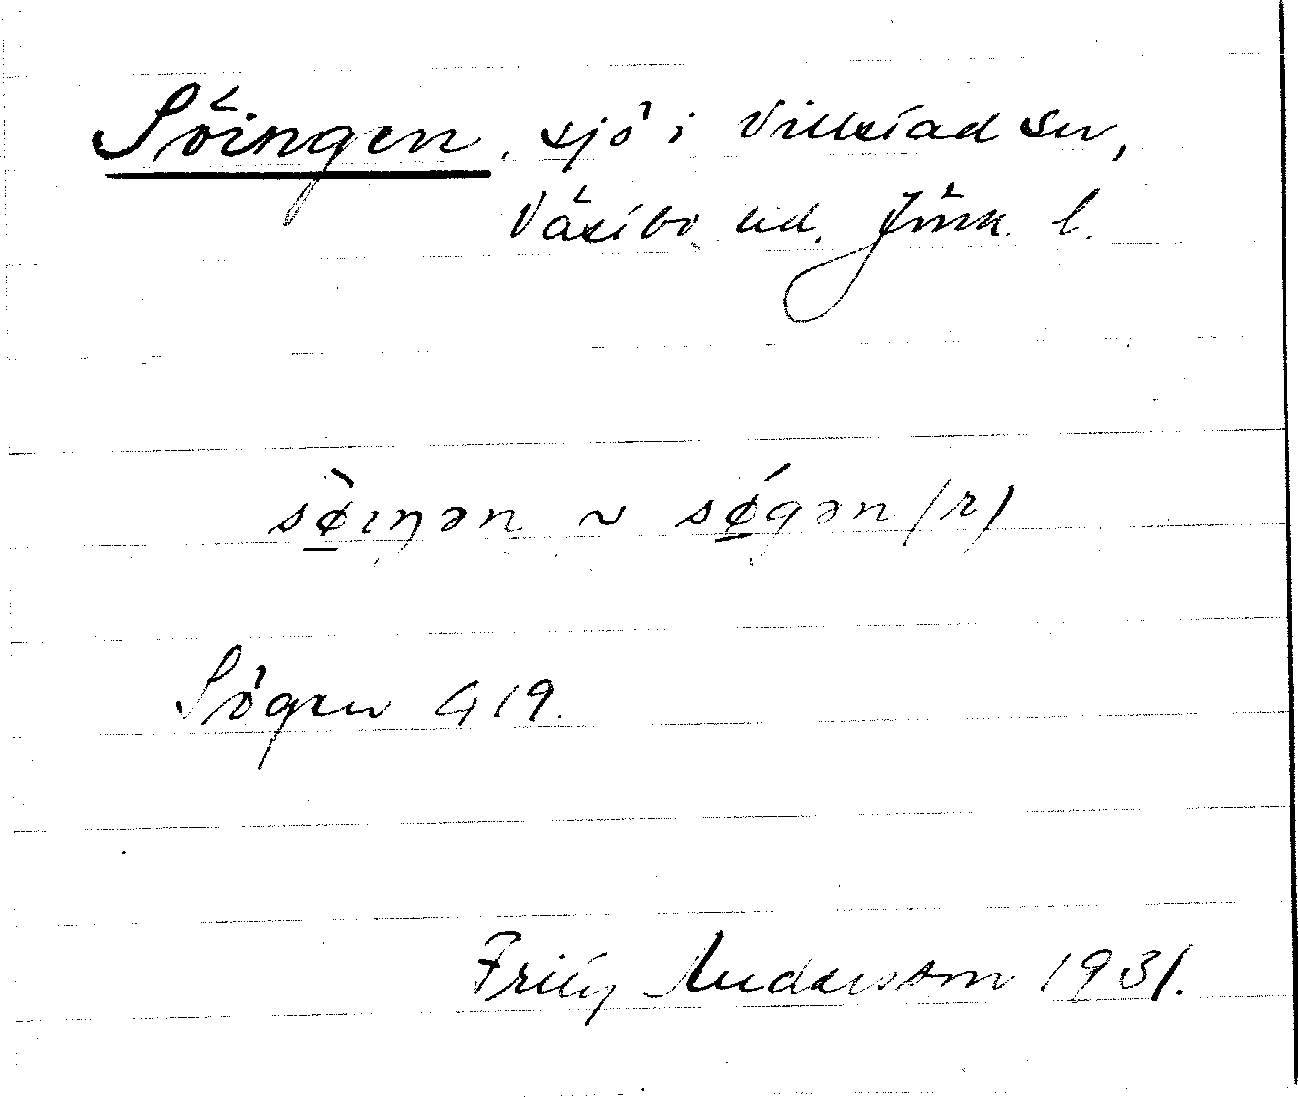 Söingen, sjö i Villstad sn,
Västbo hd. Jönk. l.
sø̀ıŋən ~ sǿgən (r)
Sögen G 19.
Fritz Andersson 1931.